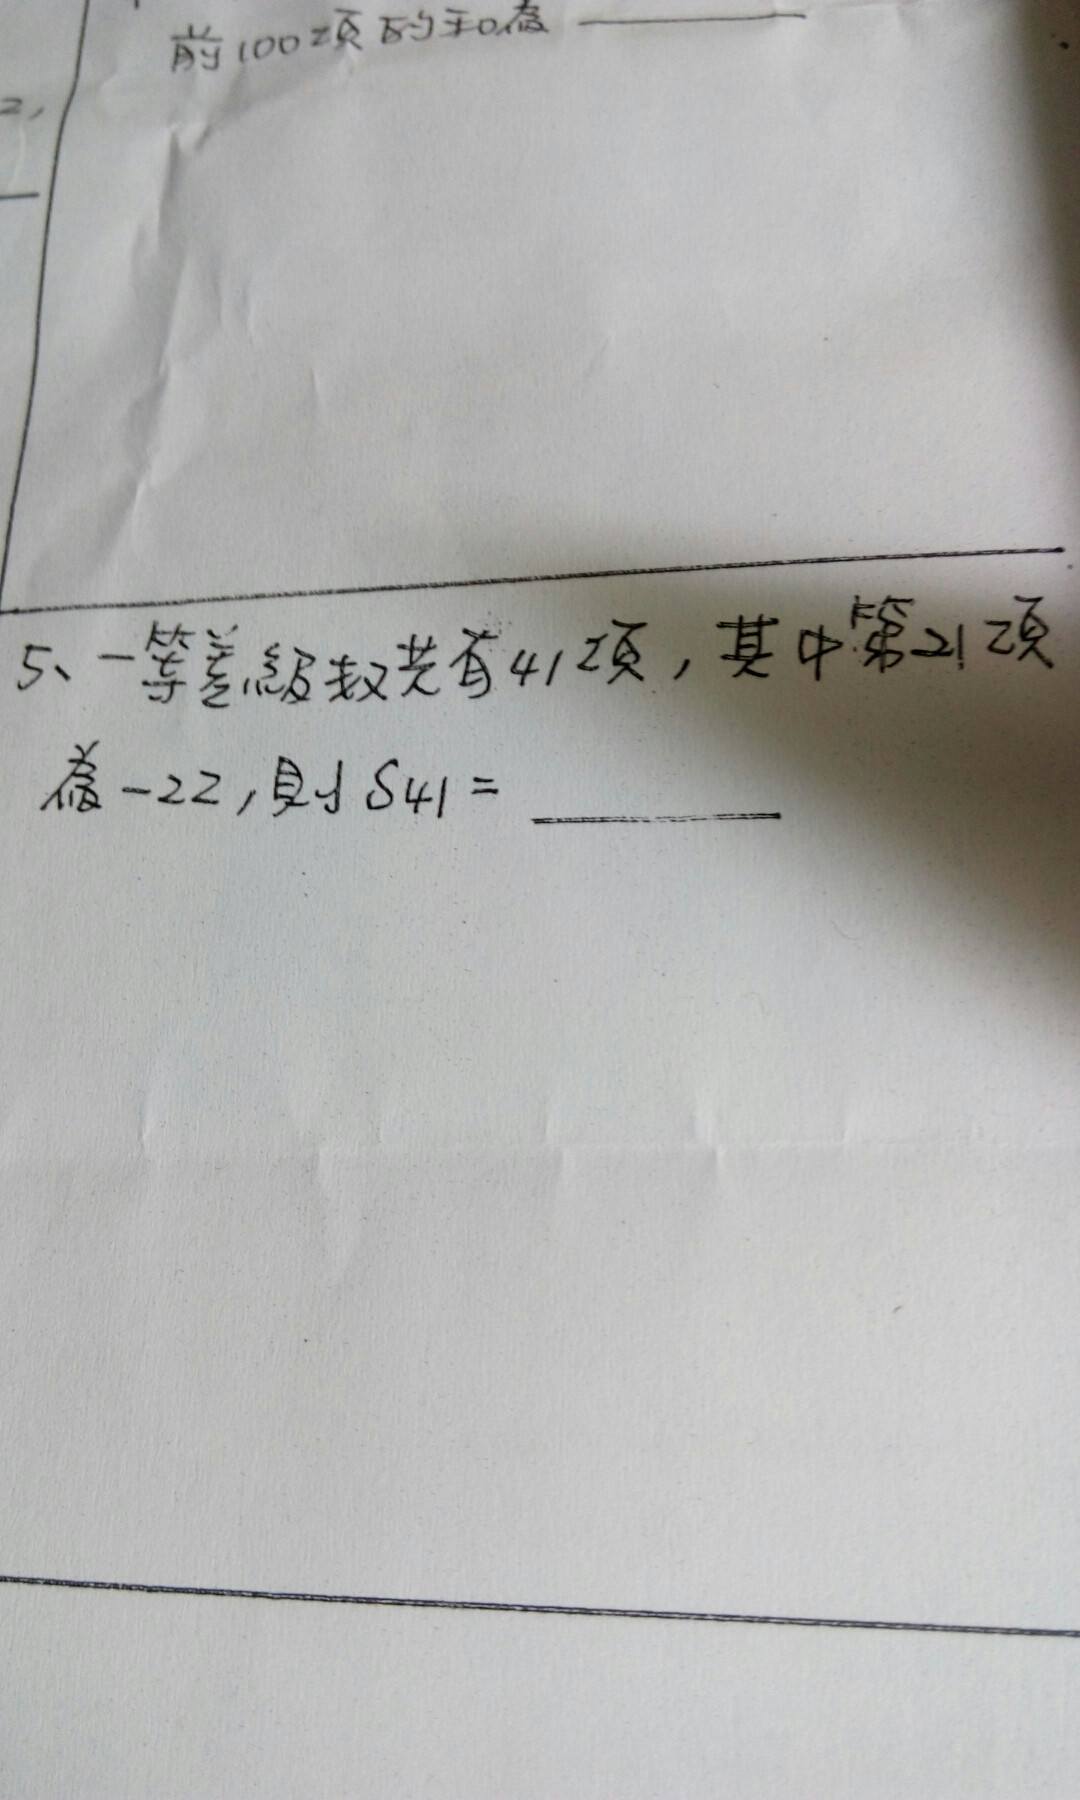 前100項的和為
2,
5、一等差級數共有41項,其中第21項
為-22,則S41=